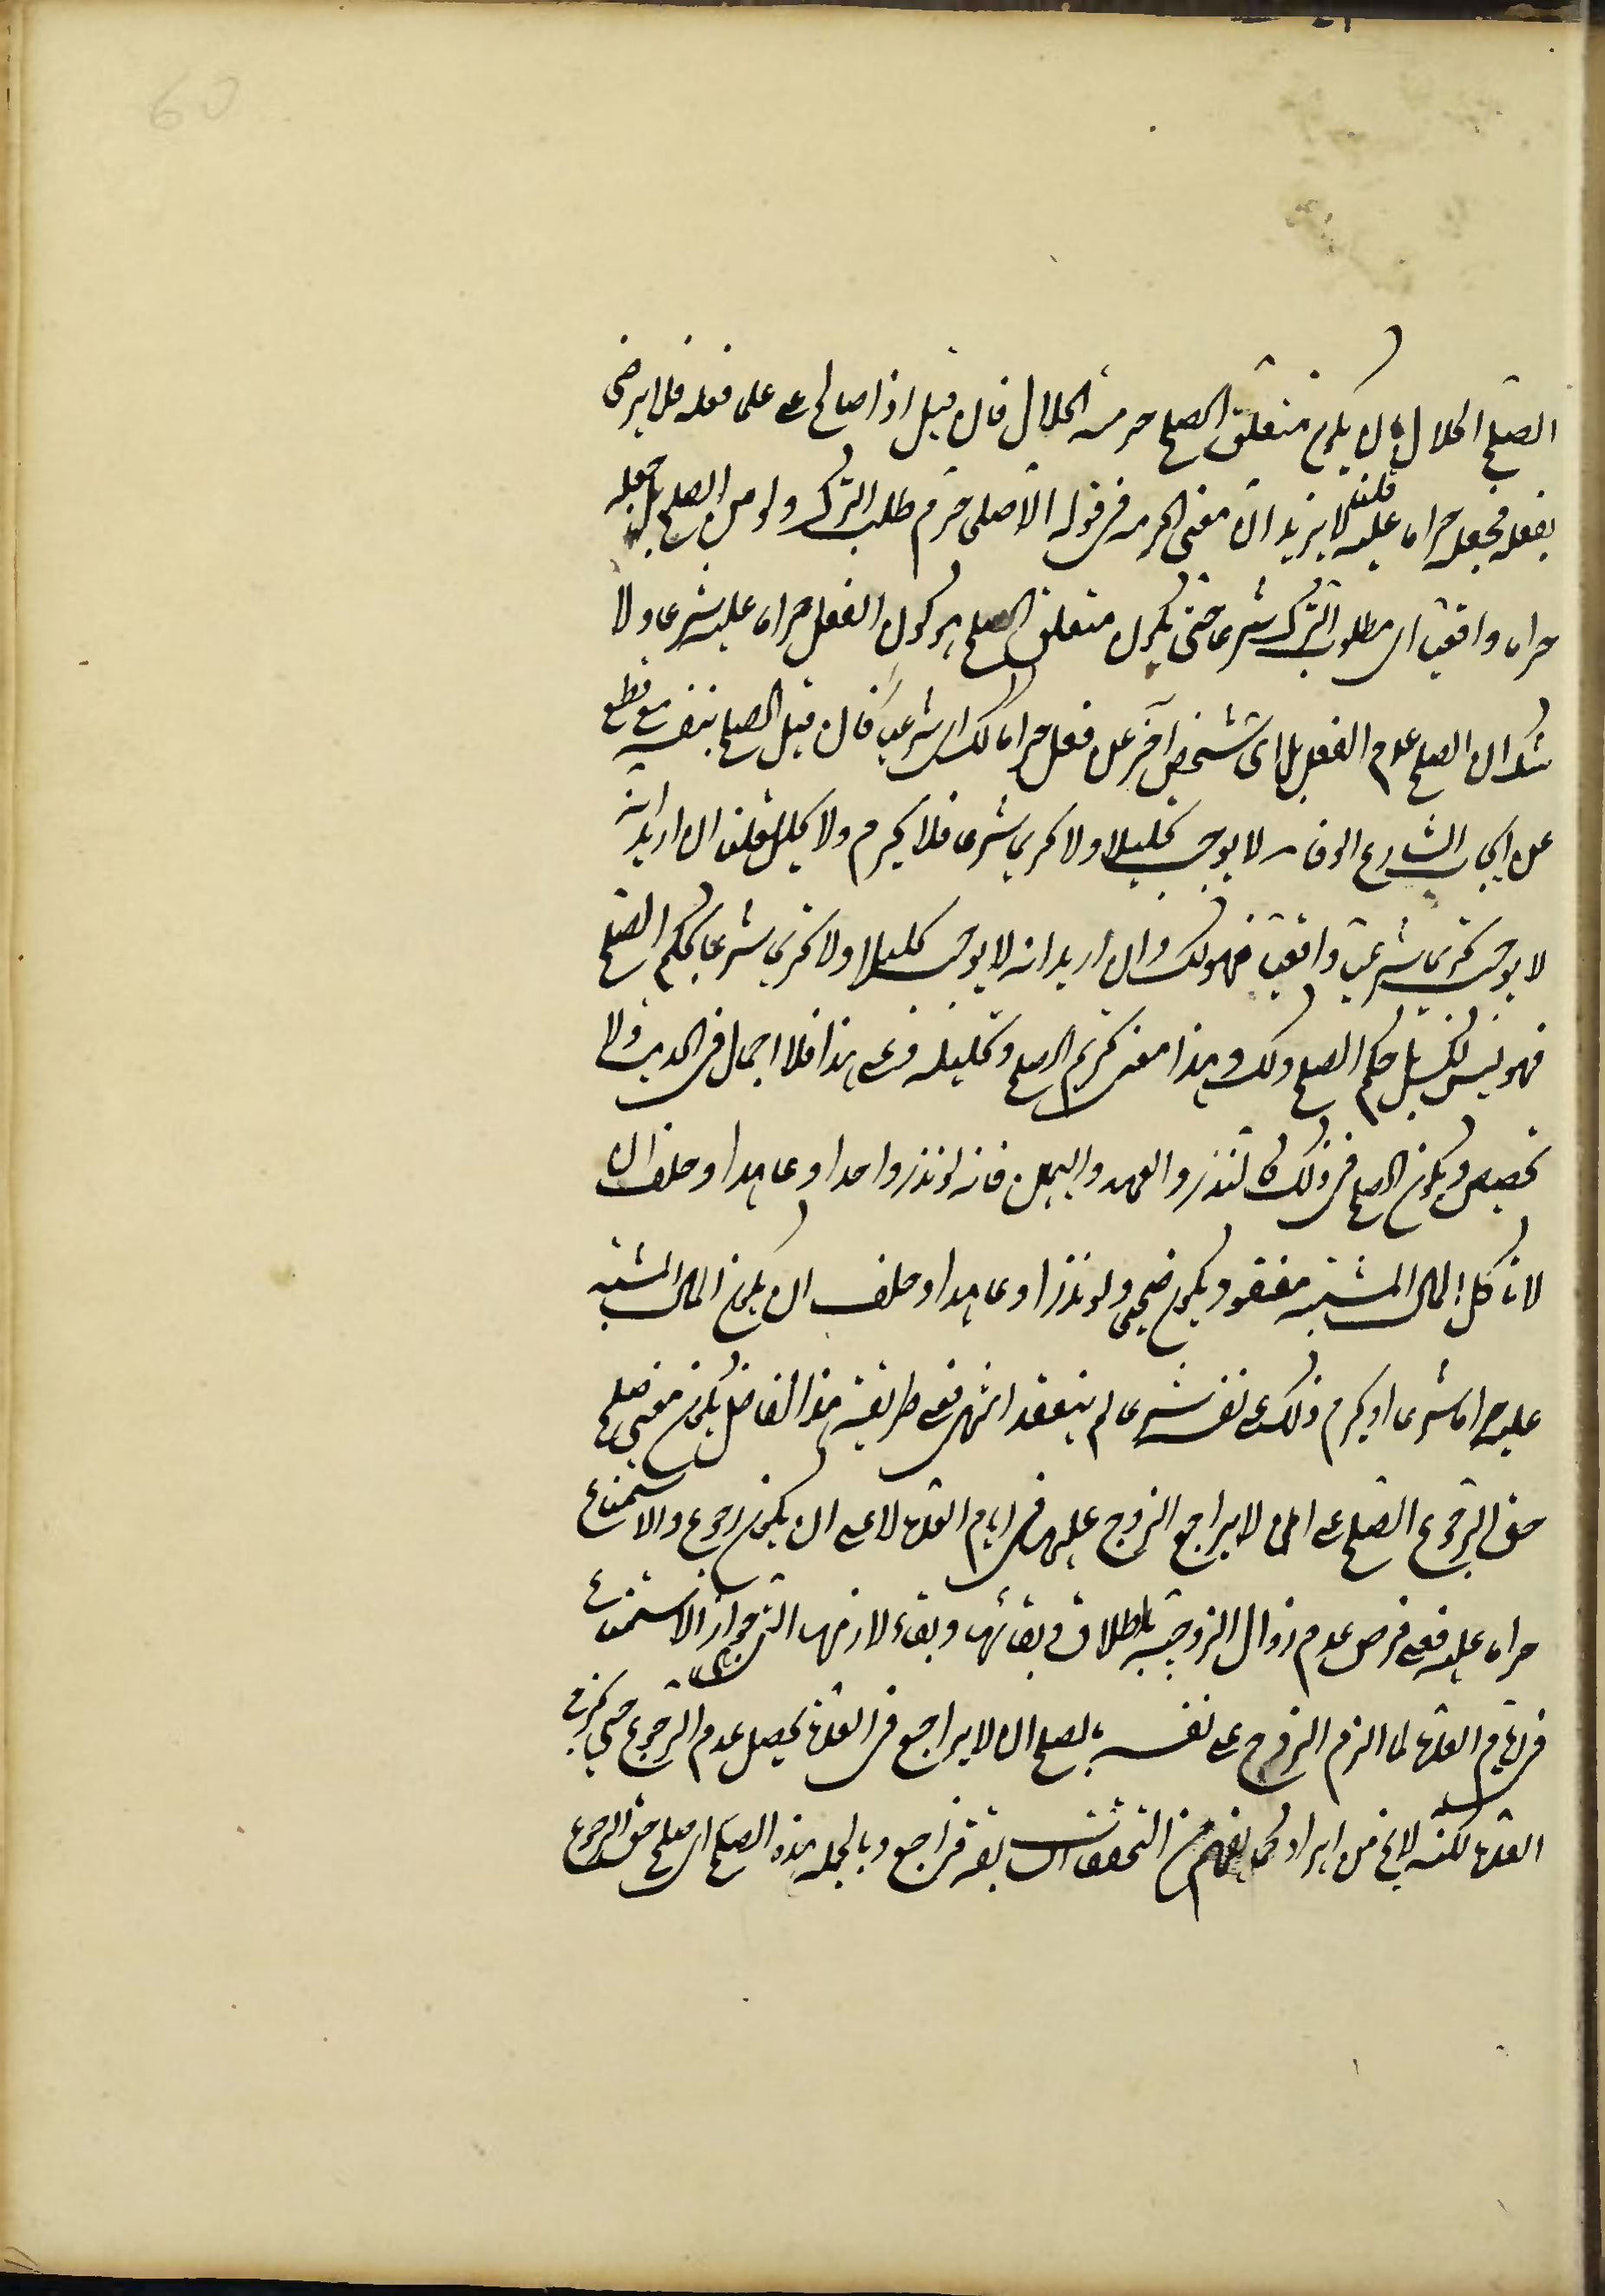 60
الصلح الحلال بان يكون متعلق الصلح حرمة الحلال فان قيل اذا صالح على فعله فلا يرضى
بفعله فيجعله حراما عليه قلنا لا يزيد ان معنى الحرمة في قوله الاصلى حرم طلب الترك ولو من الصلح بل جعله
حراما واقعيا اى مطلوب الترك شرعا حتى يكون متعلق الصلح هو كون الفعل حراما عليه شرعا ولا
شك ان الصلح عدم الفعل اى شخص آخر عن فعل حراما لك شرعيا فان قيل الصلح بنفسه مع قطع
عن ايجاب الشارع الوفاء لا يوجب تحليلا ولا تحريما شرعا فلا يحرم ولا يحلل قلنا ان اريد انه
لا يوجب تحريما شرعيا واقعيا فهو كذلك وان اريد انه لا يوجب تحليلا ولا تحريما شرعا بحكم الصلح
فهو ليس كذلك بل حكم الصلح ذلك وهذا معنى تحريم الصلح وتحليله وعلى هذا فلا اجمال في الحديث ولا
تخصيص ويكون الصلح في ذلك كالنذر والعهد واليمين فانه لو نذر واحد او عاهد او حلف ان
لا ياكل المال المشتبه ينعقد ويكون صحيحا ولو نذر او عاهد او حلف ان يكون المال المشتبه
عليه حراما شرعا او يحرم ذلك على نفسه شرعا لم ينعقد انتهى فعلى طريقة هذا الفاضل يكون معنى صلح
حق الرجوع الصلح على ان لا يراجع الزوج عليها في ايام العدة لا على ان يكون رجوع والاستمتاع
حراما عليه فعلى فرض عدم زوال الزوجية بالطلاق وبقائها وبقاء لازمها التى جواز الاستمتاع
في ايام العدة لما الزم الزوج على نفسه بالصلح ان لا يراجع في العدة يحصل عدم الرجوع حتى يخرج
العدة لكنه لا يخ من ايراد كما يفهم من التحقيقات السابقة فراجع وبالجملة هذه الصلح اى صلح حق الرجوع